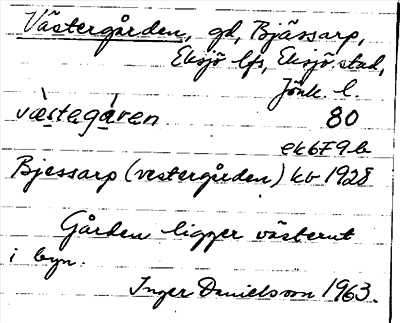 Västergården, gd, Bjässarp,
Eksjö lfs, Eksjö stad,
Jönk. l.
væstegåren 80
ek 6F9b
Bjessarp (vestergården) kb 1928
Gården ligger västerut
i byn.
Inger Danielsson 1963.